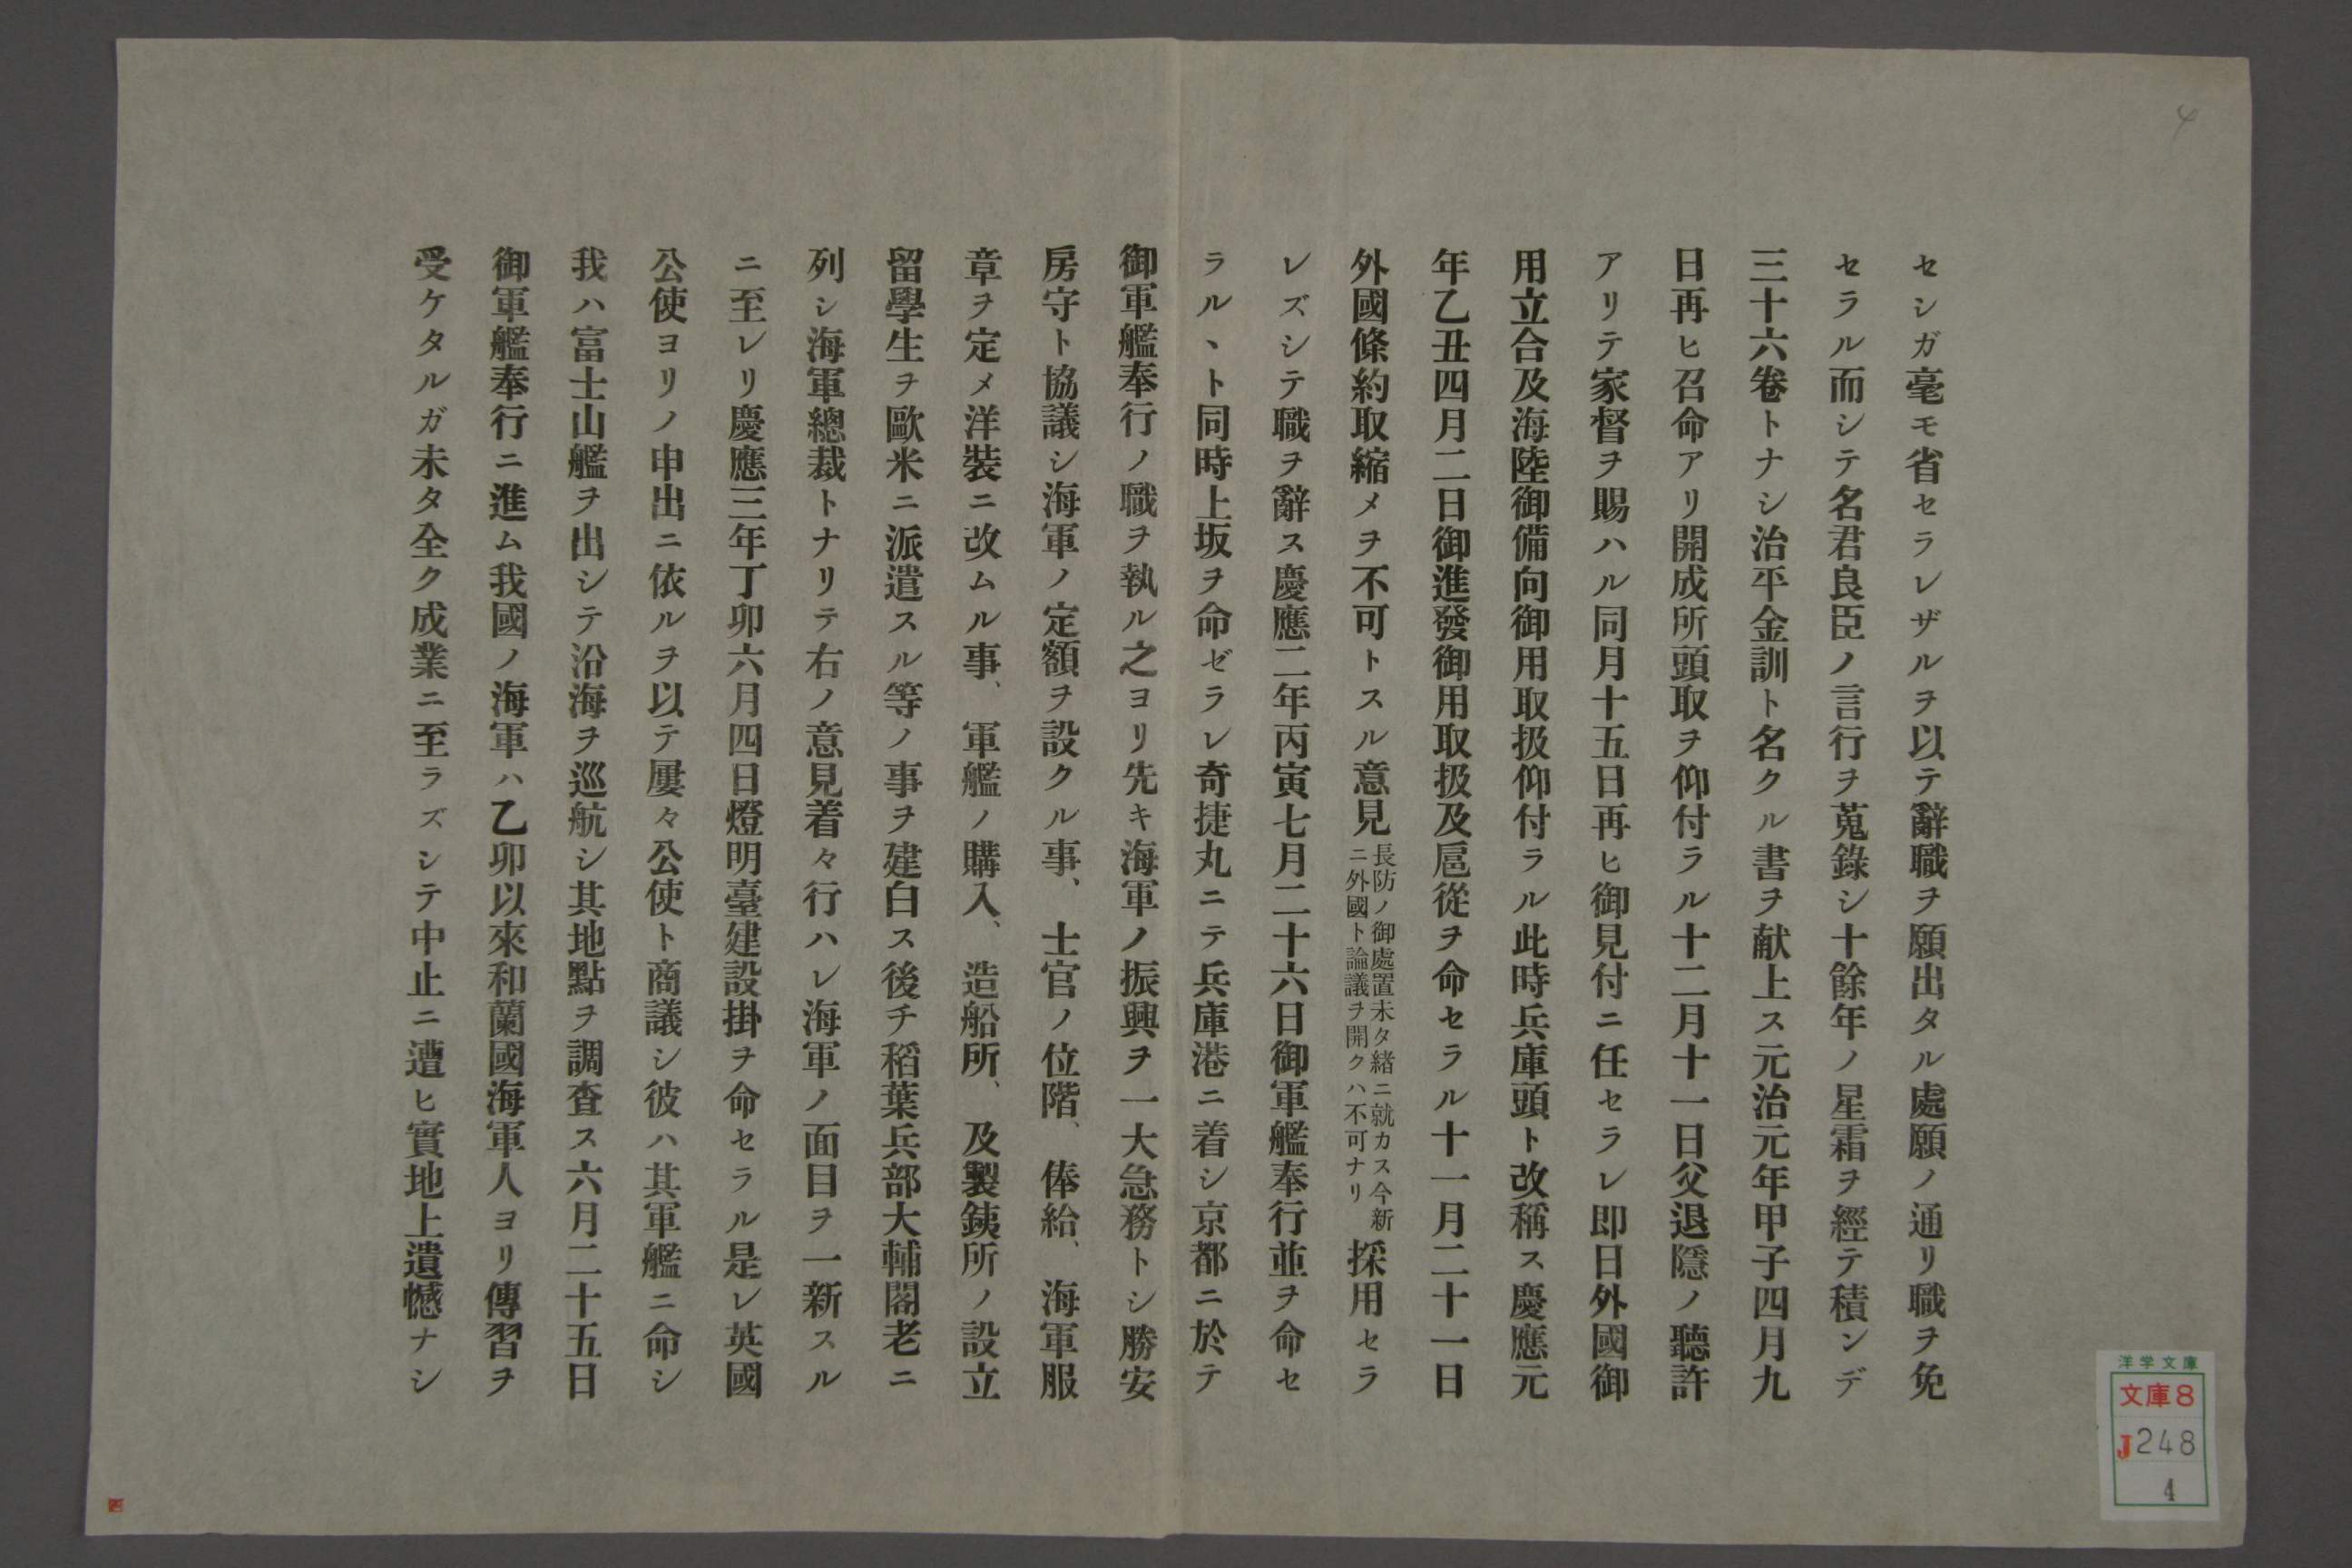 セシガ毫モ省セラレザルヲ以テ辭職ヲ願出タル處願ノ通リ職ヲ免
セラル而シテ名君良臣ノ言行ヲ蒐錄シ十餘年ノ星霜ヲ經テ積ンデ
三十六卷トナシ治平金訓ト名クル書ヲ献上ス元治元年甲子四月九
日再ヒ召命アリ開成所頭取ヲ仰付ラル十二月十一日父退隱ノ聽許
アリテ家督ヲ賜ハル同月十五日再ヒ御見付ニ任セラレ即日外國御
用立合及海陸御備向御用取扱仰付ラル此時兵庫頭ト改稱ス慶應元
年乙丑四月二日御進發御用取扱及扈從ヲ命セラル十一月二十一日
外國條約取縮メヲ不可トスル意見長防ノ御處置未タ緒ニ就カス今新ニ外國ト論議ヲ開クハ不可ナリ採用セラ
レズシテ職ヲ辭ス慶應二年丙寅七月二十六日御軍艦奉行並ヲ命セ
ラル丶ト同時上坂ヲ命ゼラレ奇捷丸ニテ兵庫港ニ着シ京都ニ於テ
御軍艦奉行ノ職ヲ執ル之ヨリ先キ海軍ノ振興ヲ一大急務トシ勝安
房守ト協議シ海軍ノ定額ヲ設クル事、士官ノ位階、俸給、海軍服
章ヲ定メ洋裝ニ改ムル事、軍艦ノ購入、造船所、及製銕所ノ設立
留學生ヲ歐米ニ派遣スル等ノ事ヲ建白ス後チ稻葉兵部大輔閣老ニ
列シ海軍總裁トナリテ右ノ意見着々行ハレ海軍ノ面目ヲ一新スル
ニ至レリ慶應三年丁卯六月四日燈明臺建設掛ヲ命セラル是レ英國
公使ヨリノ申出ニ依ルヲ以テ屢々公使ト商議シ彼ハ其軍艦ニ命シ
我ハ富士山艦ヲ出シテ沿海ヲ巡航シ其地點ヲ調査ス六月二十五日
御軍艦奉行ニ進ム我國ノ海軍ハ乙卯以來和蘭國海軍人ヨリ傳習ヲ
受ケタルガ未タ全ク成業ニ至ラズシテ中止ニ遭ヒ實地上遺憾ナシ
4
洋学文庫
文庫8
J248
4